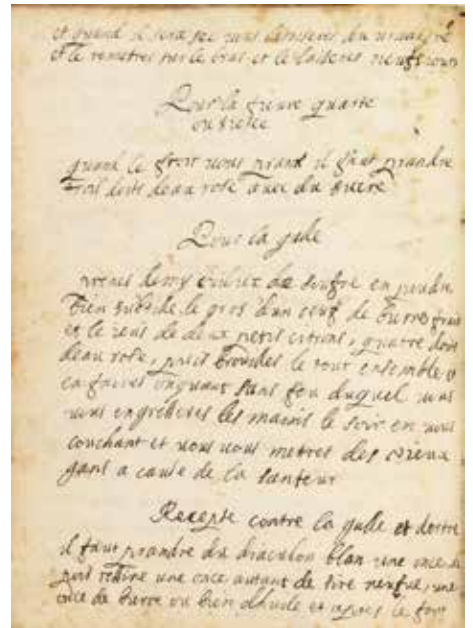 et quand il sera sec vous larouseres du vinaigre
et le remetres sur le bras et le laiseres neuf jours
Pour la fievre quarte
ou tierce
quand le froit vous prand il faut prandre
trois doits deau rose avec du sucre
Pour la gale
prenes demy culier de soufre en poudre
bien subtile le gros dun oeuf de burre frais
et le jeus de deux petis citrons, quatre doits
deau rose, puis brouilles le tout ensemble et
en faites onguant sans feu duquel vous
vous engresseres les mains le soir en vous
couchant et vous vous metres des vieux
gans a cause de la santeur
Recepte contre la gale et dertre
il faut prandre du diaculon blan une once de
poix resine une once autant de sire neufve, une
once de burre ou bien dhuile et apres le